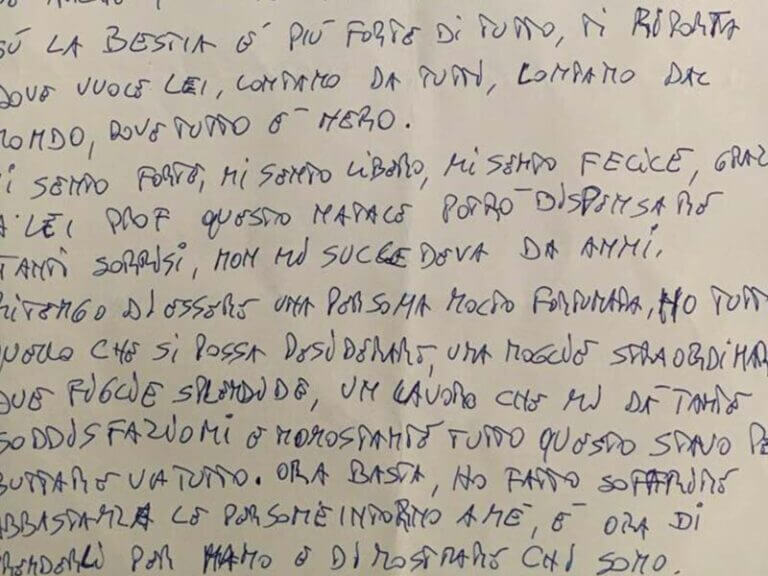 LA BESTIA È PIÙ FORTE DI TUTTO, TI RIPORTA
DOVE VUOLE LEI, LONTANO DA TUTTI, LONTANO DAL
MONDO, DOVE TUTTO È NERO.
MI SENTO FORTE, MI SENTO LIBERO, MI SENTO FELICE, GRAZ
A LEI PROF QUESTO NATALE POTRÒ DISPENSARE
TANTI SORRISI, NON MI SUCCEDEVA DA ANNI.
RITENGO DI ESSERE UNA PERSONA MOLTO FORTUNATA, HO TUTTO
QUELLO CHE SI POSSA DESIDERARE, UNA MOGLIE STRAORDINAR
DUE FIGLIE SPLENDIDE, UN LAVORO CHE MI DÀ TANTE
SODDISFAZIONI E NONOSTANTE TUTTO QUESTO STAVO PE
BUTTARE VIA TUTTO. ORA BASTA, HO FATTO SOFFRIRE
ABBASTANZA LE PERSONE INTORNO A ME, È ORA DI
PRENDERLI PER MANO E DIMOSTRARE CHI SONO.